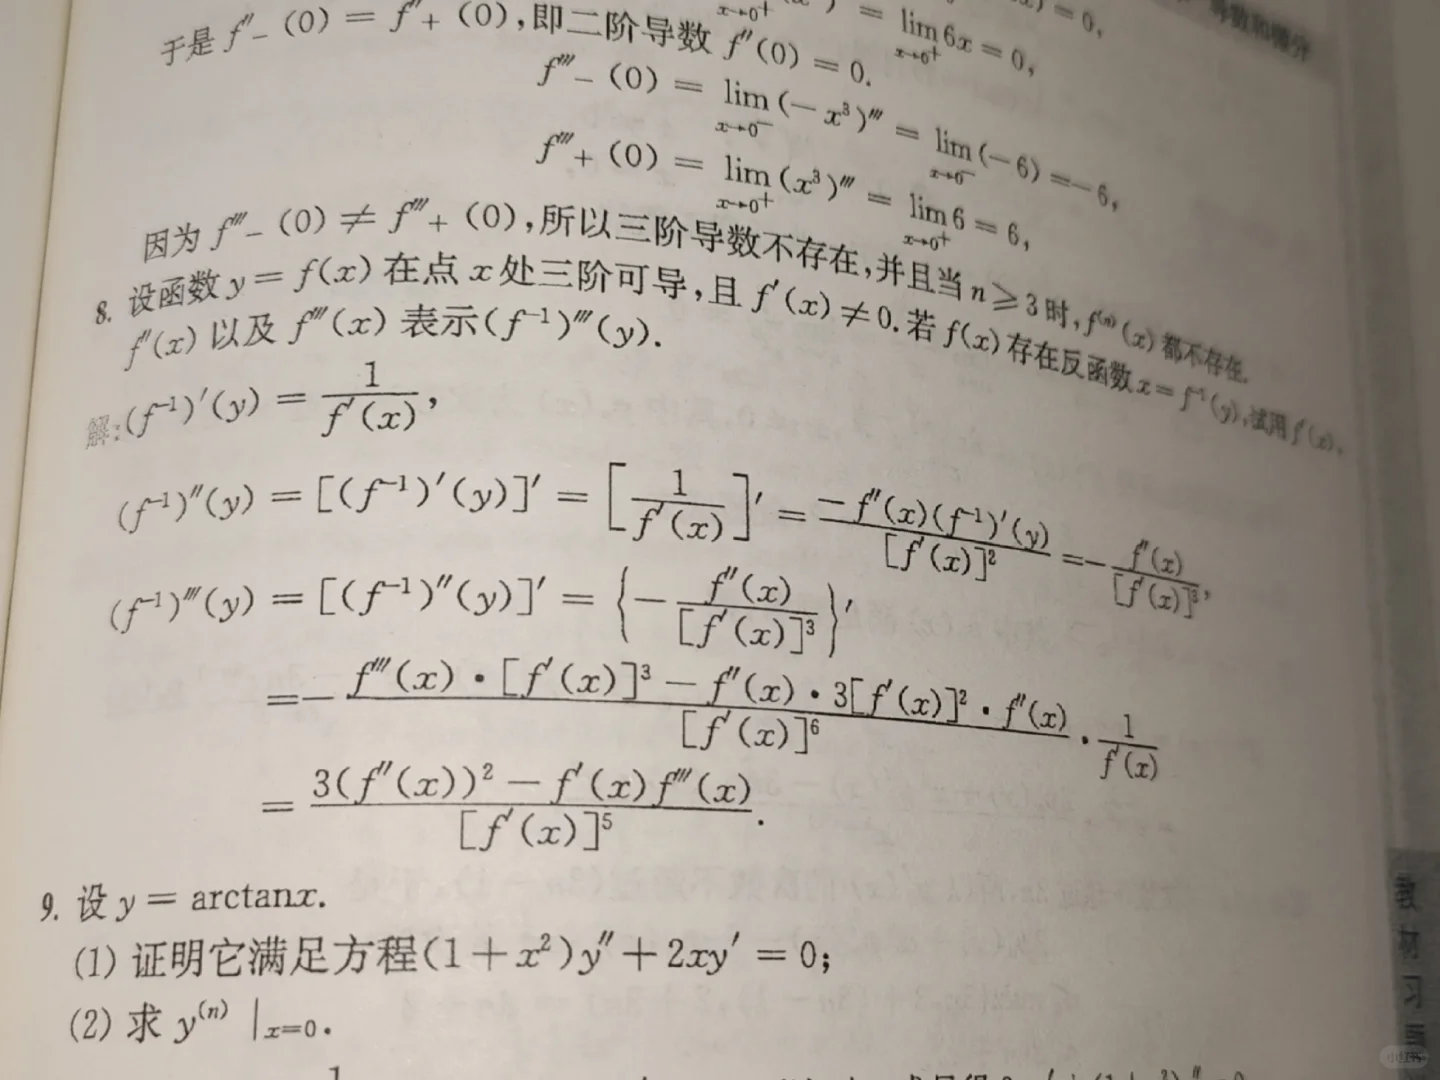 导数和微分
于是 f″₋(0) = f″₊(0),即二阶导数 f″(0) = 0.
lim 6x = 0,
x→0⁺
f‴₋(0) = lim(−x³)‴ = lim(−6) = −6,
x→0⁻ x→0⁻
f‴₊(0) = lim(x³)‴ = lim 6 = 6,
x→0⁺ x→0⁺
因为 f‴₋(0) ≠ f‴₊(0),所以三阶导数不存在,并且当 n ≥ 3 时, f⁽ⁿ⁾(x) 都不存在.
8. 设函数 y = f(x) 在点 x 处三阶可导,且 f′(x) ≠ 0. 若 f(x) 存在反函数 x = f⁻¹(y),试用 f′(x),
f″(x) 以及 f‴(x) 表示(f⁻¹)‴(y).
解:(f⁻¹)′(y) = 1/f′(x),
(f⁻¹)″(y) = [(f⁻¹)′(y)]′ = [1/f′(x)]′ = −f″(x)(f⁻¹)′(y)/[f′(x)]² = −f″(x)/[f′(x)]³,
(f⁻¹)‴(y) = [(f⁻¹)″(y)]′ = {−f″(x)/[f′(x)]³}′
= −f‴(x)·[f′(x)]³ − f″(x)·3[f′(x)]²·f″(x)/[f′(x)]⁶ · 1/f′(x)
= 3(f″(x))² − f′(x)f‴(x)/[f′(x)]⁵.
9. 设 y = arctanx.
(1) 证明它满足方程(1+x²)y″+2xy′ = 0;
(2) 求 y⁽ⁿ⁾|ₓ₌₀.
教材习